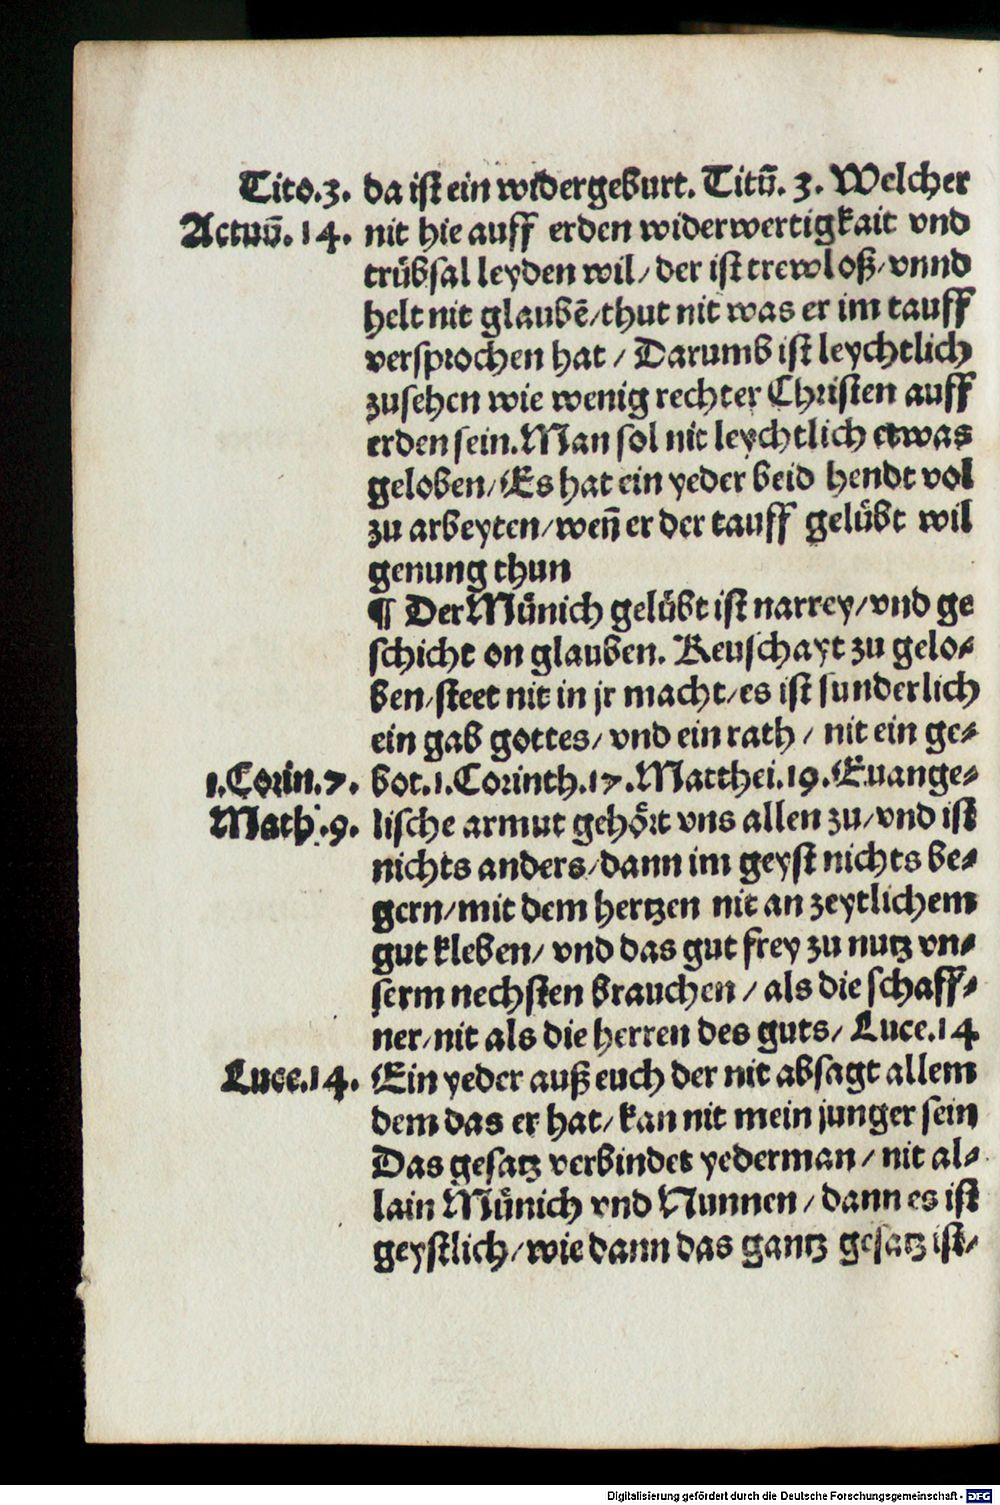 Tito.3. da ist ein widergeburt. Titū. 3. Welcher
Actuū. 14. nit hie auff erden widerwertigkait vnd
trübsal leyden wil/ der ist trewloß/ vnnd
helt nit glaubē/ thut nit was er im tauff
versprochen hat / Darumb ist leychtlich
zusehen wie wenig rechter Christen auff
erden sein. Man sol nit leychtlich etwas
geloben/ Es hat ein yeder beid hendt vol
zu arbeyten/ weñ er der tauff gelübt wil
genung thun
¶ Der Münich gelübt ist narrey/ vnd ge
schicht on glauben. Keuschayt zu gelo⸗
ben/ steet nit in jr macht/ es ist sunderlich
ein gab gottes/ vnd ein rath / nit ein ge⸗
1.Corin.7. bot.1.Corinth.17.Matthei.19.Euange⸗
Math.9. lische armut gehört vns allen zu/ vnd ist
nichts anders/ dann im geyst nichts be⸗
gern/ mit dem hertzen nit an zeytlichem
gut kleben/ vnd das gut frey zu nutz vn⸗
serm nechsten brauchen / als die schaff⸗
ner/ nit als die herren des guts/ Luce.14
Luce.14. Ein yeder auß euch der nit absagt allem
dem das er hat/ kan nit mein junger sein
Das gesatz verbindet yederman / nit al⸗
lain Münich vnd Nunnen / dann es ist
geystlich/ wie dann das gantz gesatz ist/
Digitalisierung gefördert durch die Deutsche Forschungsgemeinschaft - DFG